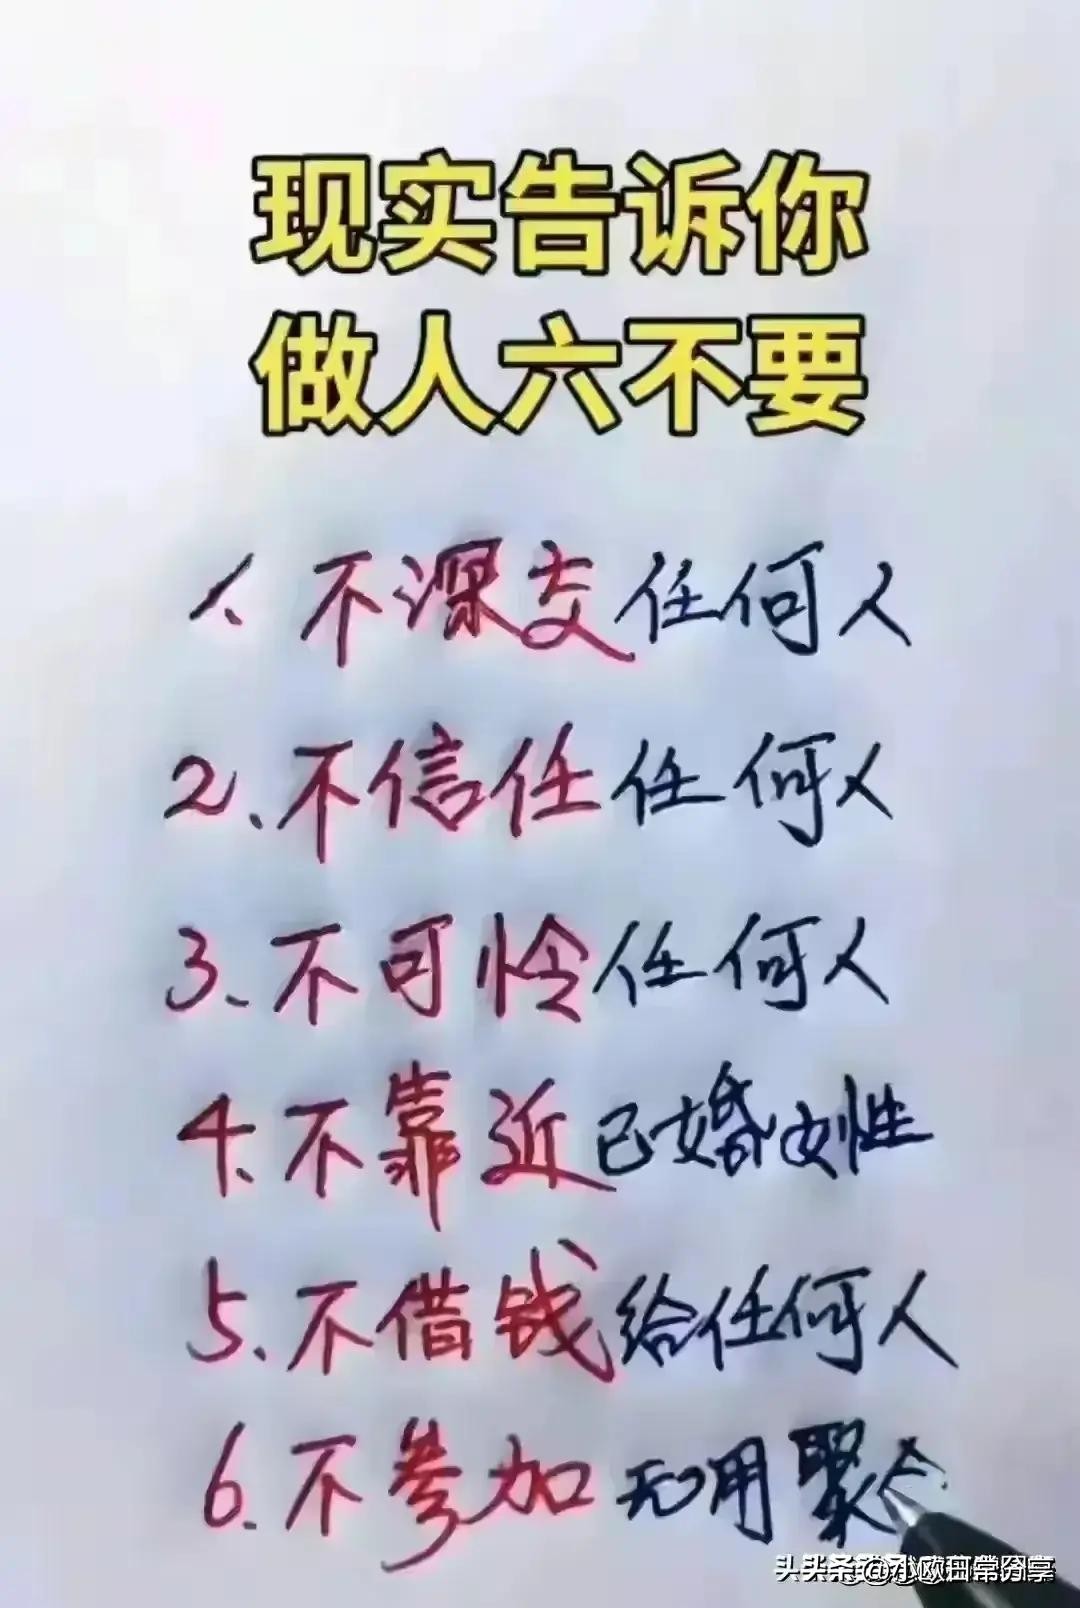 现实告诉你
做人六不要
1、不深交任何人
2、不信任任何人
3、不可怜任何人
4、不靠近已婚女性
5、不借钱给任何人
6、不参加无用聚会
头条 @小欧日常分享